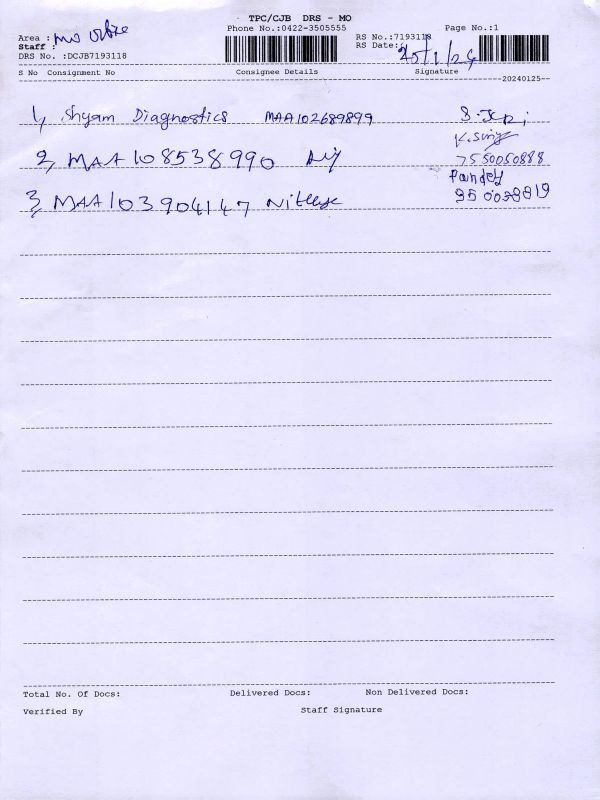 TPC/CJB DRS - MO
Phone No.:0422-3505555
Page No.:1
Area : MO
Staff :
DRS No. :DCJB7193118
RS No.:7193118
RS Date: 25/1/24
S No Consignment No Consignee Details Signature
20240125
1, Shyam Diagnostics MAA102689899
2, MAA108538990
7550050888
3, MAA103904147
Pandey
Total No. Of Docs: Delivered Docs: Non Delivered Docs:
Verified By Staff Signature